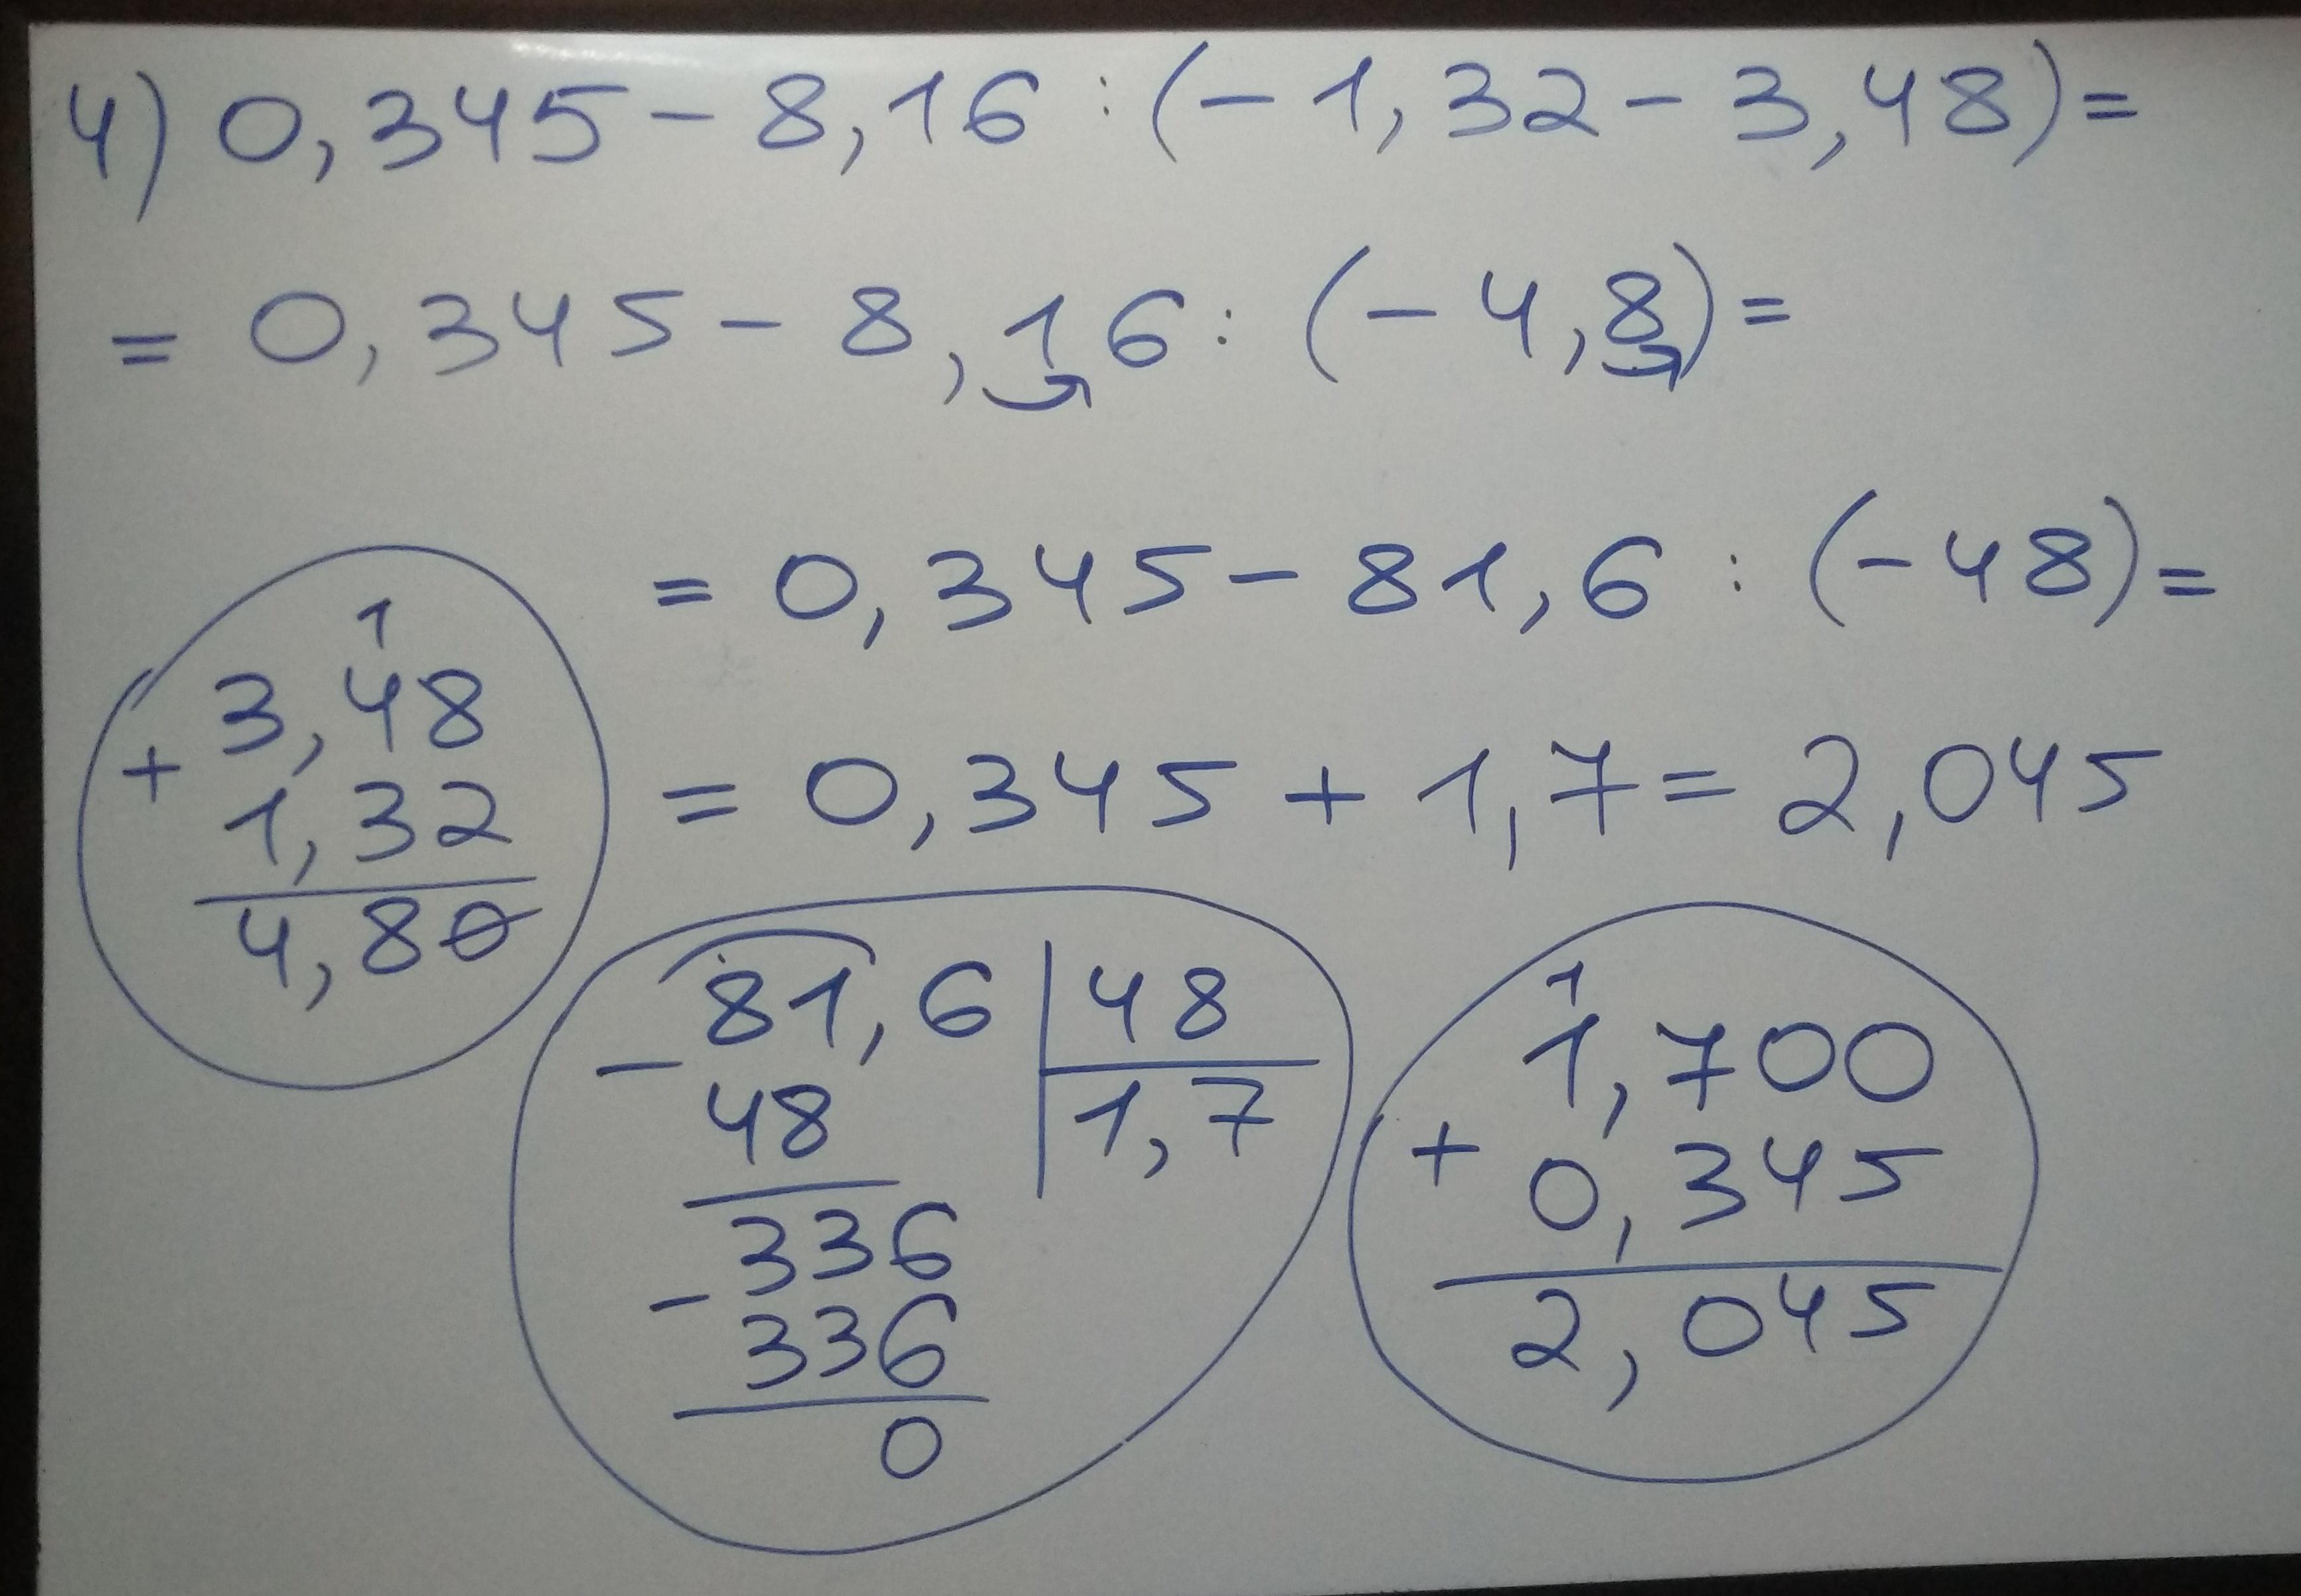 4) 0,345 - 8,16 : (- 1,32 - 3,48) =
= 0,345 - 8,16 : (- 4,8) =
= 0,345 - 81,6 : (- 48) =
= 0,345 + 1,7 = 2,045
1
3,48
+
1,32
4,80
81,6 | 48
-
48 | 1,7
336
-
336
0
1
1,700
+
0,345
2,045